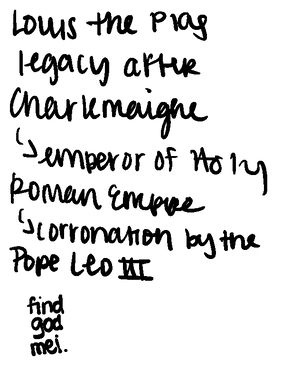 Louis the Piag
legacy after
Charlemaigne
↳ emperor of Holy
Roman Empire
↳ corronation by the
Pope Leo III
find
god
mei.